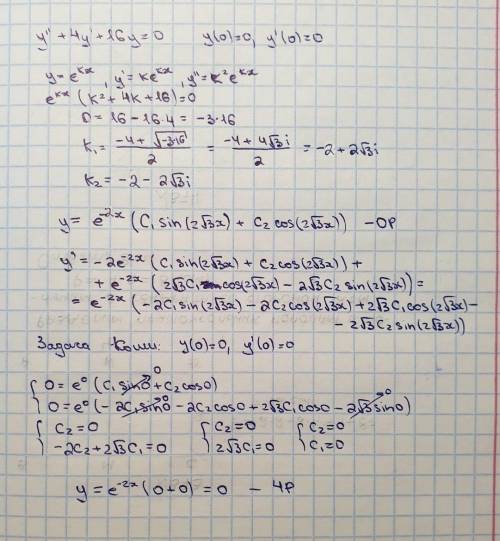 y'' + 4y' + 16y = 0   y(0)=0, y'(0)=0
y = e^{kx}, y' = ke^{kx}, y'' = k²e^{kx}
e^{kx}(k² + 4k + 16) = 0
D = 16 - 16·4 = -3·16
k₁ = (-4 + √(-3·16))/2 = (-4 + 4√3i)/2 = -2 + 2√3i
k₂ = -2 - 2√3i
y = e^{-2x}(C₁ sin(2√3x) + C₂ cos(2√3x)) - ОР
y' = -2e^{-2x}(C₁ sin(2√3x) + C₂ cos(2√3x)) +
+ e^{-2x}(2√3C₁ cos(2√3x) - 2√3C₂ sin(2√3x)) =
= e^{-2x}(-2C₁ sin(2√3x) - 2C₂ cos(2√3x) + 2√3C₁ cos(2√3x) -
- 2√3C₂ sin(2√3x))
Задача Коши: y(0)=0, y'(0)=0
{ 0 = e⁰(C₁ sin0 + C₂ cos0) 0
0 = e⁰(-2C₁ sin0 - 2C₂ cos0 + 2√3C₁ cos0 - 2√3 sin0) 0 0
{ C₂ = 0   { C₂ = 0   { C₂ = 0
-2C₂ + 2√3C₁ = 0   2√3C₁ = 0   C₁ = 0
y = e^{-2x}(0+0) = 0 - ЧР